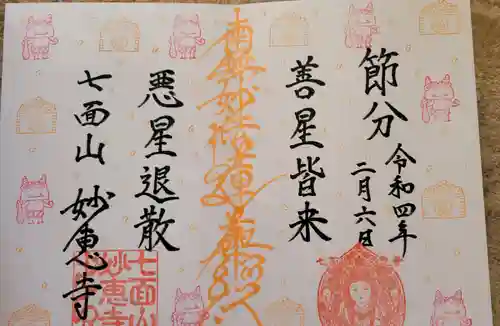 節分
令和四年
二月六日
善星皆来
南無妙法蓮華経
悪星退散
七面山 妙恵寺
七面山
妙恵寺